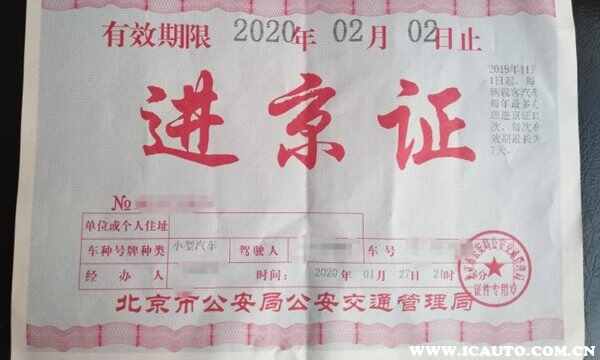 有效期限 2020年 02月 02日止
进京证
2019年11月
1日起，每
辆载客汽车
每年最多办
理进京证12
次，每次有
效期最长为
7天。
№
单位或个人住址
车种号牌种类 小型汽车 驾驶人 车号
经办人 时间：2020年01月27日21时 分
北京市公安局公安交通管理局
证件专用章
WWW.ICAUTO.COM.CN